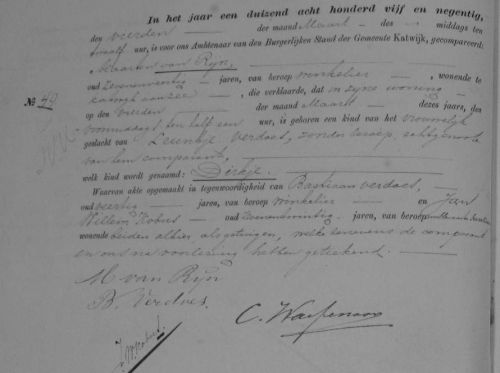 In het jaar een duizend acht honderd vijf en negentig,
den vierden der maand Maart des middags ten
twaalf uur, is voor ons Ambtenaar van den Burgerlijken Stand der Gemeente Katwijk, gecompareerd:
Maarten van Rijn,
oud jaren, van beroep winkelier, wonende te
Katwijk aan zee, die verklaarde, dat in zijne woning
No. 49 op den vierden der maand Maart dezes jaars, den
voormiddags ten half een uur, is geboren een kind van het vrouwelijk
geslacht van Leuntje Verdoes, zonder beroep, echtgenoote
van hem comparant,
welk kind wordt genaamd: Dirkje.
Waarvan akte opgemaakt in tegenwoordigheid van Bastiaan Verdoes,
oud veertig jaren, van beroep winkelier en Jan
Willem oud jaren, van beroep
wonende beiden alhier als getuigen, welke nevens de comparant
en ons na voorlezing hebben geteekend.
M van Rijn
B. Verdoes.
C.